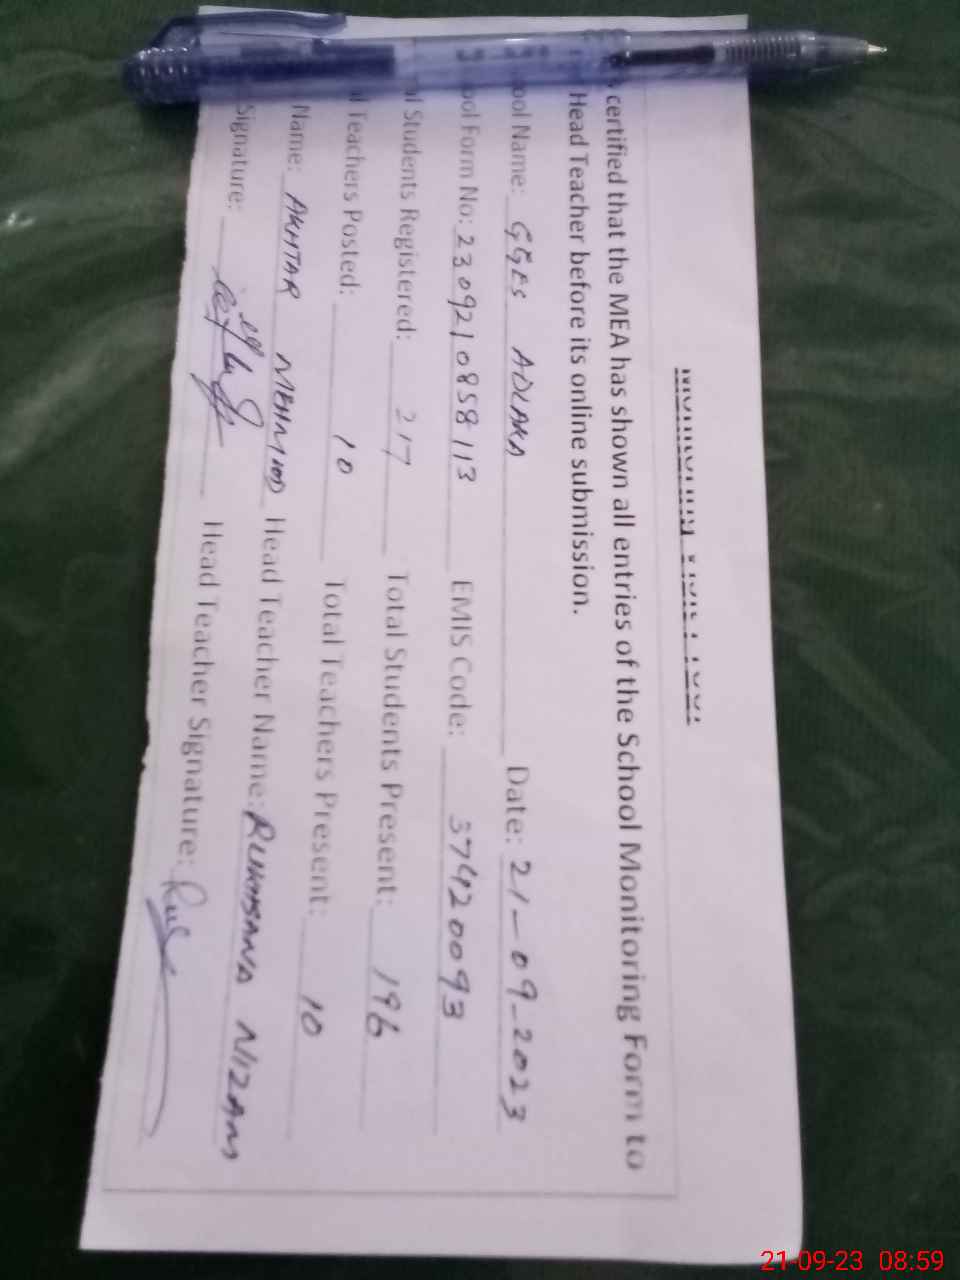 Monitoring Visit Proof
certified that the MEA has shown all entries of the School Monitoring Form to
Head Teacher before its online submission.
ool Name: GGES ADLAKA Date: 21-09-2023
ool Form No: 2309210858113 EMIS Code: 37420093
al Students Registered: 217 Total Students Present: 196
l Teachers Posted: 10 Total Teachers Present: 10
Name: AKHTAR MEHMOOD Head Teacher Name: RUKHSANA NIZAMI
Signature: Head Teacher Signature:
21-09-23 08:59